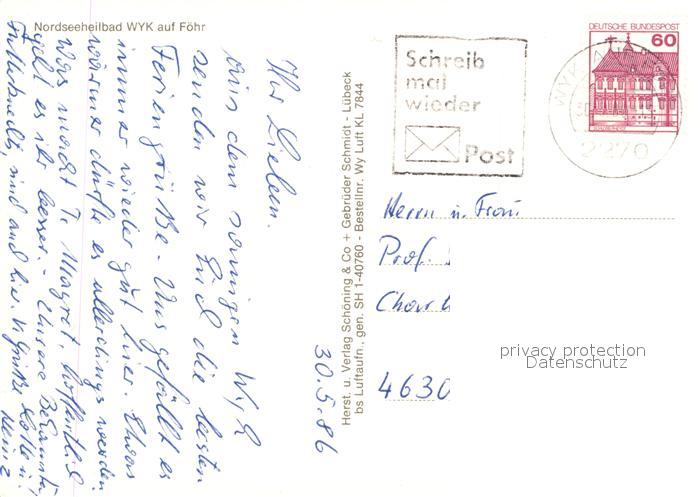 Nordseeheilbad WYK auf Föhr
30.5.86
Ihr Lieben.
Aus dem sonnigen Wyk
senden wir Euch die besten
Feriengrüße - Uns gefällt es
immer wieder gut hier. Etwas
wärmer dürfte es allerdings werden.
Was macht T. Margret, hoffentlich
geht es ihr besser. - Unsere Bekannten,
sind auch hier. Grüße Lotte u.
Heinz
Herst. u. Verlag Schöning & Co + Gebrüder Schmidt - Lübeck
bs Luftaufn., gen. SH 1-40760 - Bestellnr. Wy Luft KL 7844
Schreib
mal
wieder
Post
DEUTSCHE BUNDESPOST
60
WYK
2270
Herrn u. Frau
Prof.
4630
privacy protection
Datenschutz